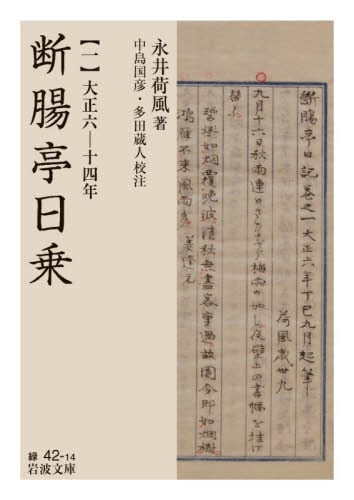 断膓亭日記巻之一大正六年丁巳九月起筆
荷風歳卅九
九月十六日秋雨連日さながら梅雨の如し夜壁上の書幅を挂け
替ふ
碧樹如烟覆晩波清秋無盡客重過故園今即如烟樹
鴻雁不来風雨多 姜逢元
永井荷風 著
中島国彦・多田蔵人校注
【一】大正六―十四年
断腸亭日乗
緑 42-14
岩波文庫